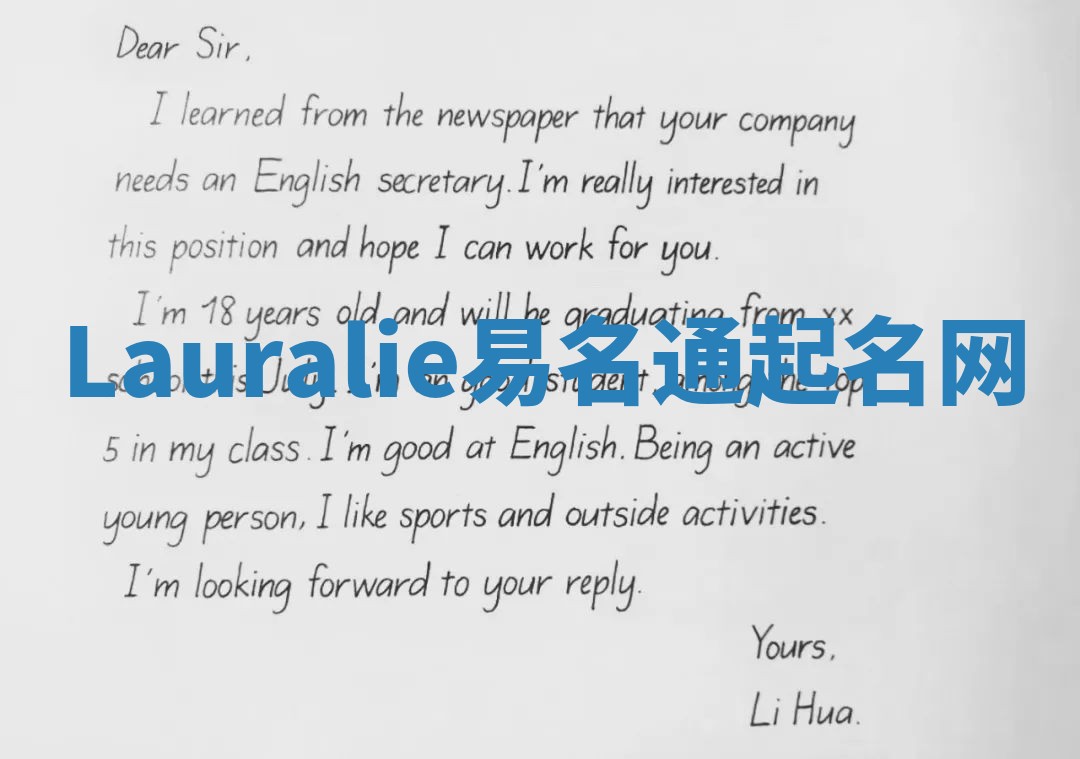 Dear Sir,
I learned from the newspaper that your company
needs an English secretary. I'm really interested in
this position and hope I can work for you.
I'm 18 years old and will be graduating from xx
Lauralie易名通起名网
school this July. I'm an good student, among the top
5 in my class. I'm good at English. Being an active
young person, I like sports and outside activities.
I'm looking forward to your reply.
Yours,
Li Hua.